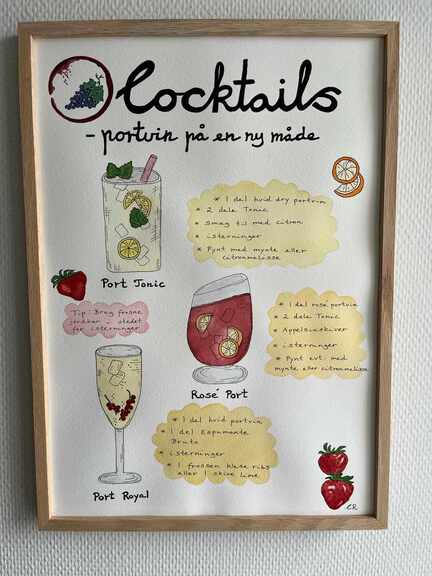 Cocktails
- portvin på en ny måde
* 1 del hvid dry portvin
* 2 dele Tonic
* Smag til med citron
* isterninger
* Pynt med mynte eller
citronmelisse
Port Tonic
Tip: Brug frosne
jordbær i stedet
for isterninger
* 1 del rosé portvin
* 2 dele Tonic
* Appelsinskiver
* isterninger
* Pynt evt. med
mynte eller citronmelisse
Rosé Port
* 1 del hvid portvin
* 1 del Espumante
Bruto
* isterninger
* 1 frossen klase ribs
eller 1 skive lime
Port Royal
CR